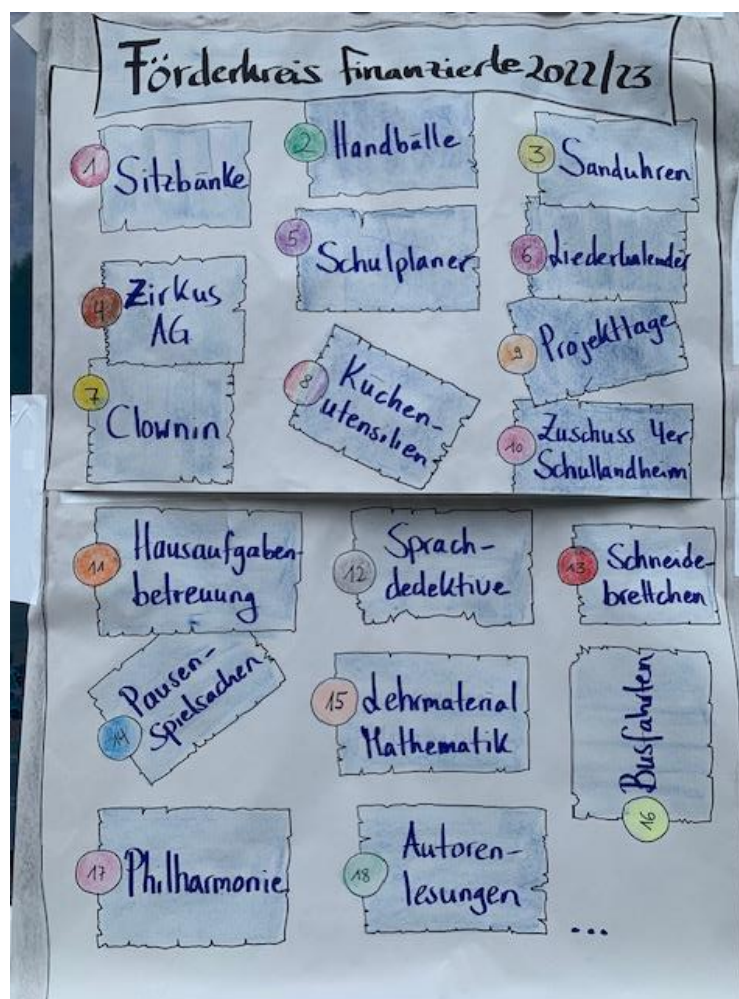 Förderkreis finanzierte 2022/23
1
Sitzbänke
2
Handbälle
3
Sanduhren
4
Zirkus
AG
5
Schulplaner
6
Liederkalender
7
Clownin
8
Kuchen-
utensilien
9
Projekttage
10
Zuschuss 4er
Schullandheim
11
Hausaufgaben-
betreuung
12
Sprach-
dedektive
13
Schneide-
brettchen
14
Pausen-
Spielsachen
15
Lehrmaterial
Mathematik
16
Busfahrten
17
Philharmonie
18
Autoren-
lesungen
...